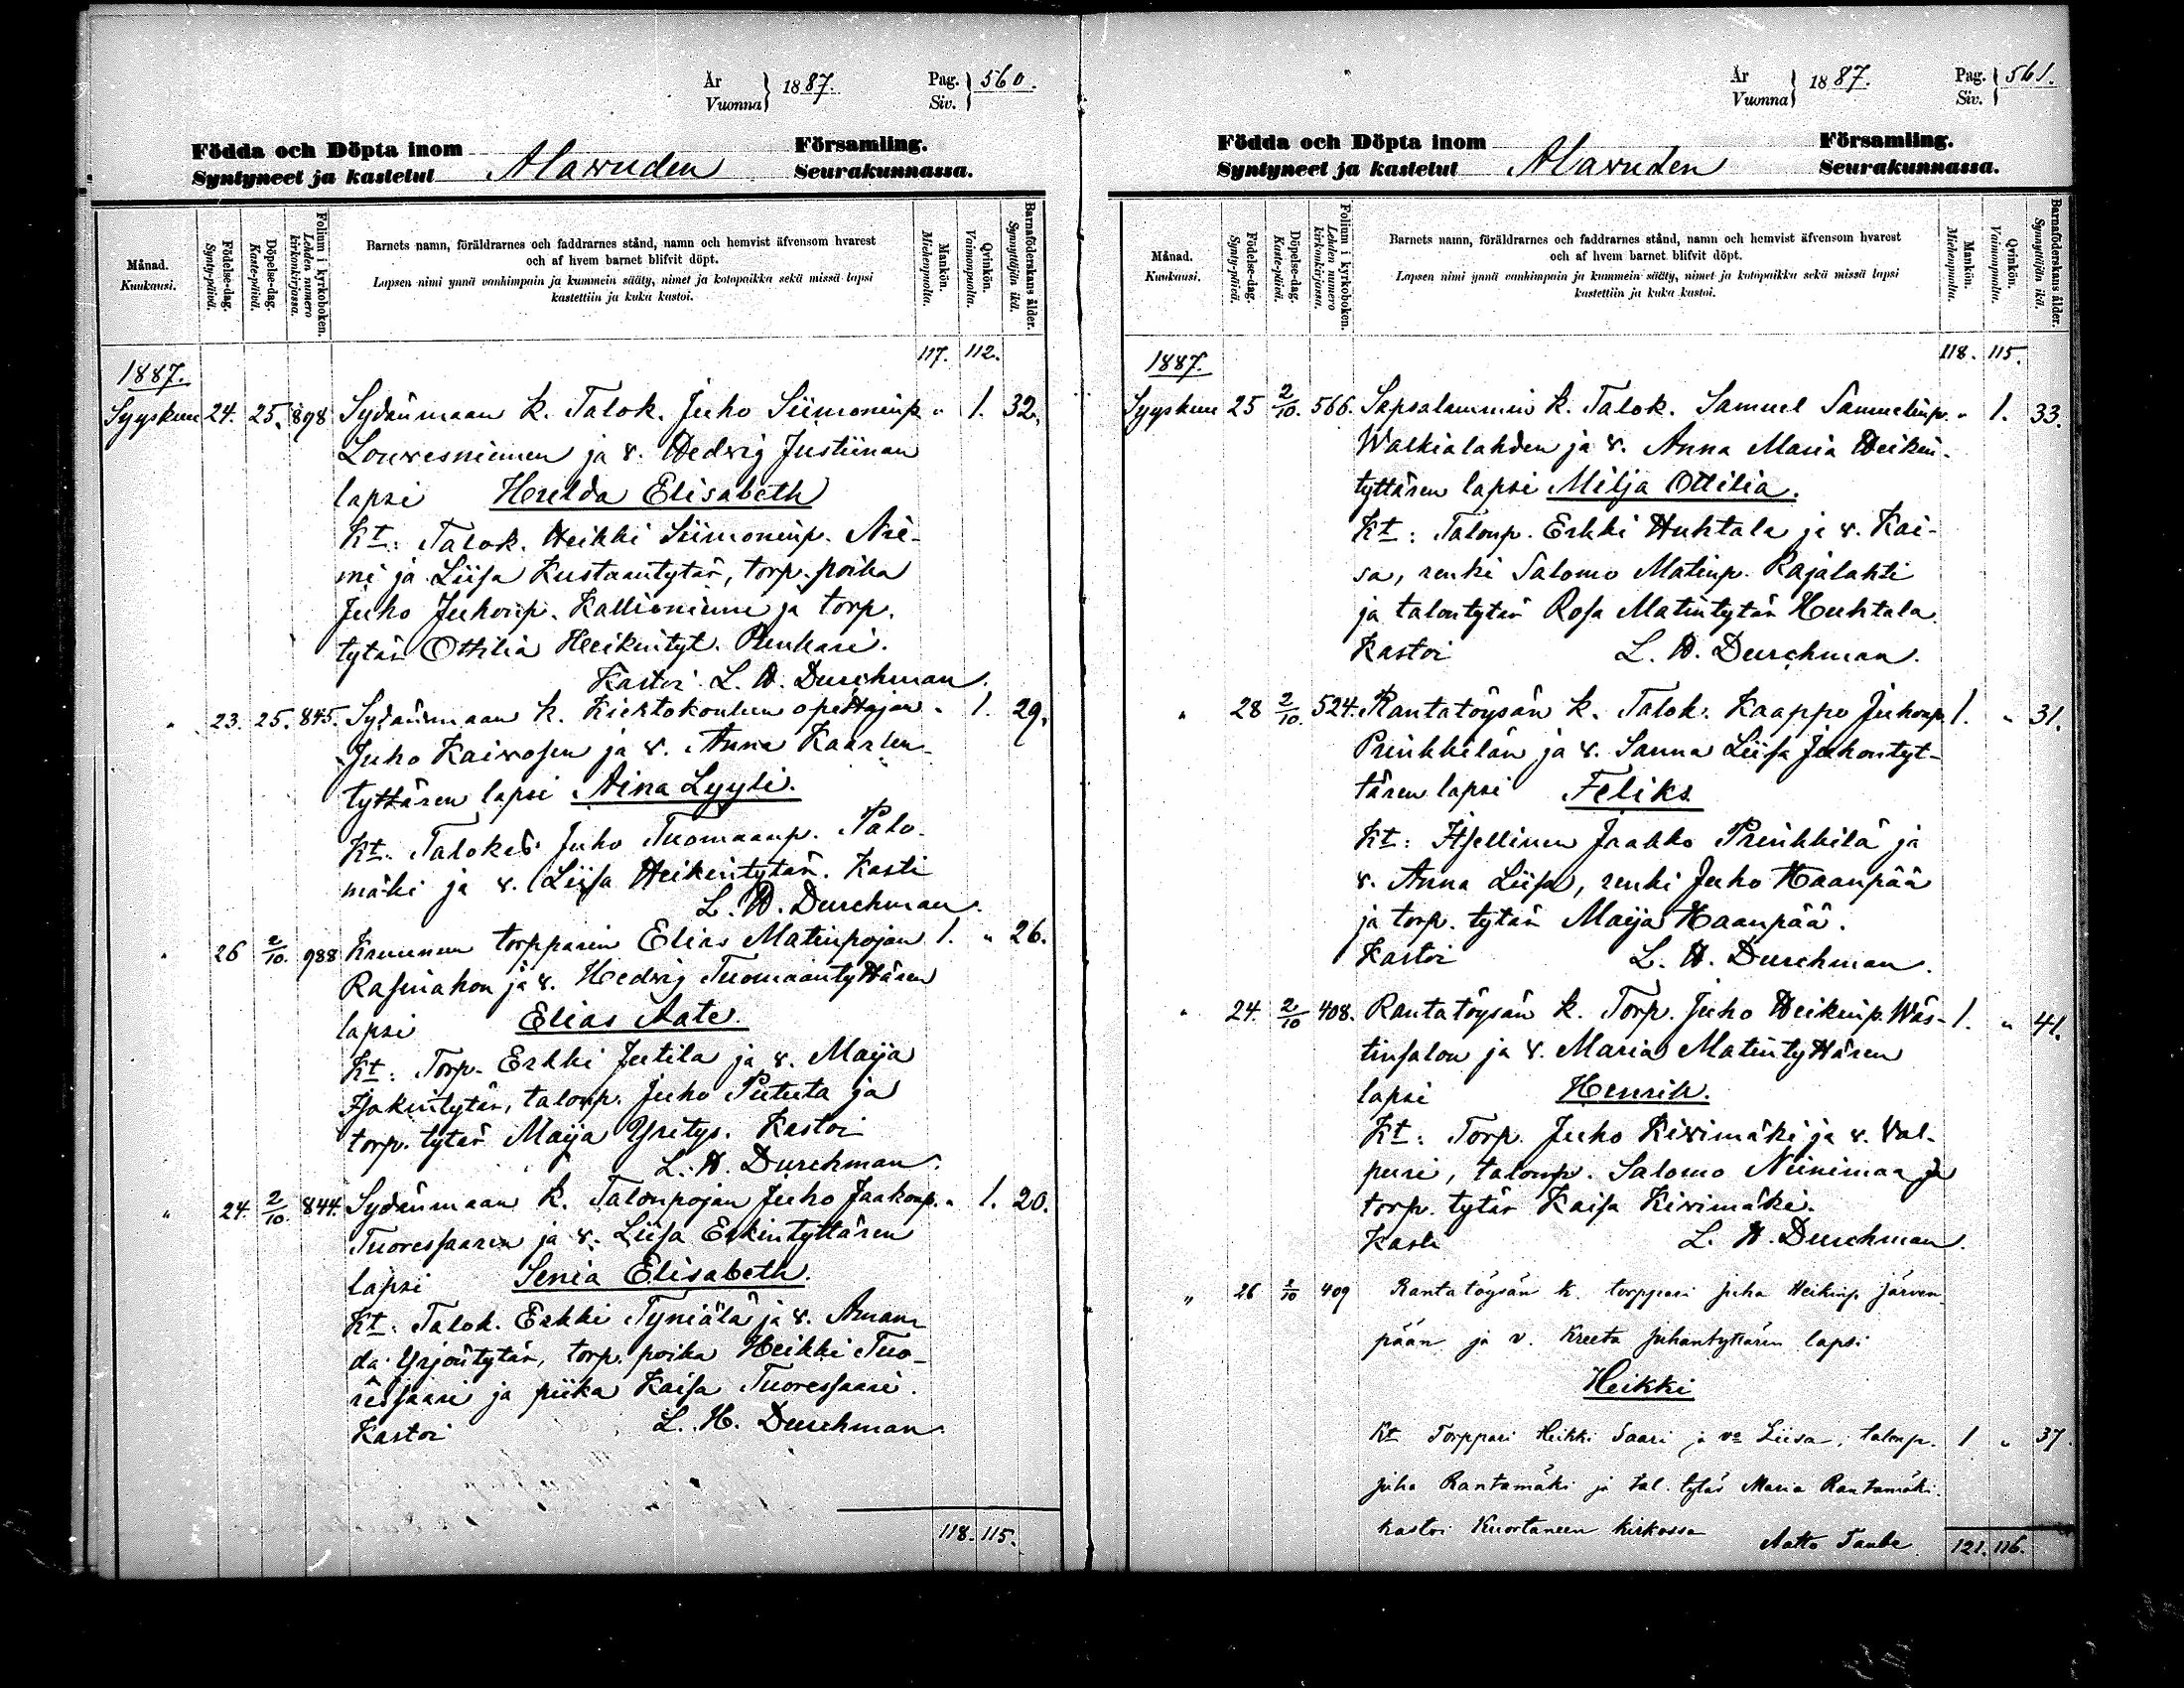 År
Vuonna } 1887.
Pag.
Siv. } 560.
Födda och Döpta inom
Syntyneet ja kastetut
Alavuden
Församling.
Seurakunnassa.
Månad.
Kuukausi.
Födelse-dag.
Synty-päivä.
Döpelse-dag.
Kaste-päivä.
Folium i kyrkoboken.
Lehden numero
kirkonkirjassa.
Barnets namn, föräldrarnes och faddrarnes stånd, namn och hemvist äfvensom hvarest
och af hvem barnet blifvit döpt.
Lapsen nimi ynnä vanhimpain ja kummein sääty, nimet ja kotopaikka sekä missä lapsi
kastettiin ja kuka kastoi.
Mankön.
Miehenpuolta.
Qvinkön.
Vaimonpuolta.
Barnaföderskans ålder.
Synnyttäjän ikä.
117. 112.
1887.
Syyskuu 24. 25. 898 Sydänmaan k. Talok. Juho Siimoninp. " 1. 32.
Louvesniemen ja v. Hedvig Justiinan
lapsi Herelda Elisabeth
Kt: Talok. Heikki Siimoninp. Nie-
mi ja Liisa Kustaantytär, torp. poika
Juho Juhonp. Kallioniemi ja torp.
tytär Ottilia Heikintyt.
Kastoi L. H. Durchman.
" 23. 25. 845. Sydänmaan k. Kiertokoulun opettajan " 1. 29.
Juho Kaivosen ja v. Anna Kaarlen-
tyttären lapsi Aina Lyyli.
Kt: Juho Tuomaanp. Palo-
mäki ja v. Liisa Heikintytär. Kasti
L. H. Durchman.
" 26 2/10. 988 Kruunun torpparin Elias Matinpojan 1. " 26.
Rasinahon ja v. Hedvig Tuomaantyttären
lapsi Elias Aate.
Kt: Torp. Erkki Jutila ja v. Maija
Isakintytär, talonp. Juho ja
torp. tytär Maija Yritys. Kastoi
L. H. Durchman.
" 24. 2/10. 844. Sydänmaan k. Talonpojan Juho Jaakonp. " 1. 20.
Tuoressaaren ja v. Liisa Erkintyttären
lapsi Senia Elisabeth.
Kt: Talok. Erkki Tyniälä ja v. Aman-
da Yrjöntytär, torp. poika Heikki Tuo-
ressaari ja piika Kaisa Tuoressaari.
Kastoi L. H. Durchman.
118. 115.
År
Vuonna } 1887.
Pag.
Siv. } 561.
Födda och Döpta inom
Syntyneet ja kastetut
Alavuden
Församling.
Seurakunnassa.
Månad.
Kuukausi.
Födelse-dag.
Synty-päivä.
Döpelse-dag.
Kaste-päivä.
Folium i kyrkoboken.
Lehden numero
kirkonkirjassa.
Barnets namn, föräldrarnes och faddrarnes stånd, namn och hemvist äfvensom hvarest
och af hvem barnet blifvit döpt.
Lapsen nimi ynnä vanhimpain ja kummein sääty, nimet ja kotopaikka sekä missä lapsi
kastettiin ja kuka kastoi.
Mankön.
Miehenpuolta.
Qvinkön.
Vaimonpuolta.
Barnaföderskans ålder.
Synnyttäjän ikä.
118. 115.
1887.
Syyskuu 25 2/10. 566. Sapsalammin k. Talok. Samuel Samuelinp. " 1. 33.
Walkialahden ja v. Anna Maria Heikin-
tyttären lapsi Milja Ottilia.
Kt: Talonp. Erkki Huhtala ja v. Kai-
sa, renki Salomo Matinp. Rajalahti
ja talontytär Rosa Matintytär Huhtala.
Kastoi L. H. Durchman.
" 28 2/10. 524. Rantatöysän k. Talok. Kaappo Juhonp. 1. " 31.
Prinkkilän ja v. Sanna Liisa Juhontyt-
tären lapsi Feliks
Kt: Itsellinen Jaakko Prinkkilä ja
v. Anna Liisa, renki Juho Haanpää
ja torp. tytär Maija Haanpää.
Kastoi L. H. Durchman.
" 24. 2/10 408. Rantatöysän k. Torp. Juho Heikinp. Wäs- 1. " 41.
tinsalon ja v. Maria Matintyttären
lapsi Henrik.
Kt: Torp. Juho Kivimäki ja v. Val-
puri, talonp. Salomo Niinimaa ja
torp. tytär Kaisa Kivimäki.
Kasti L. H. Durchman.
" 26 2/10 409 Rantatöysän k. torppari Juha Heikinp. Järven-
pään ja v. Kreeta Juhantyttären lapsi
Heikki
Kt Torppari Heikki Saari ja vo Liisa, talonp. 1 " 37.
Juha Rantamäki ja tal. tytär Maria Rantamäki.
Kastoi Kuortaneen kirkossa Aatto Taube
121. 116.